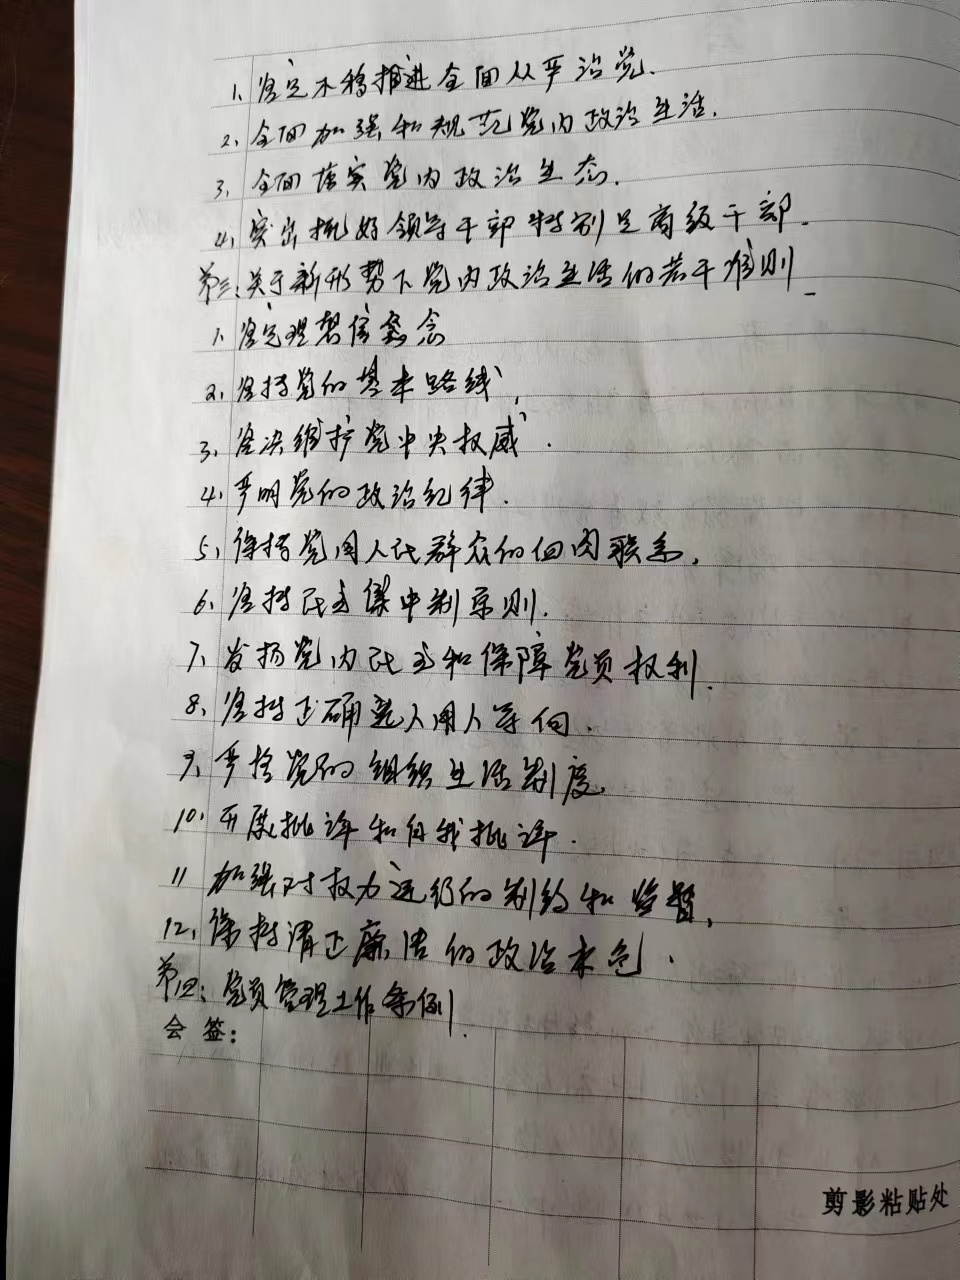 1、坚定不移推进全面从严治党.
2、全面加强和规范党内政治生活.
3、全面落实党内政治生态.
4、突出抓好领导干部特别是高级干部.
第三:关于新形势下党内政治生活的若干准则
1、坚定理想信念
2、坚持党的基本路线,
3、坚决维护党中央权威.
4、严明党的政治纪律.
5、保持党同人民群众的血肉联系,
6、坚持民主集中制原则.
7、发扬党内民主和保障党员权利.
8、坚持正确选人用人导向.
9、严格党的组织生活制度.
10、开展批评和自我批评.
11 加强对权力运行的制约和监督,
12、保持清正廉洁的政治本色.
第四:党员管理工作条例.
会 签:
剪影粘贴处